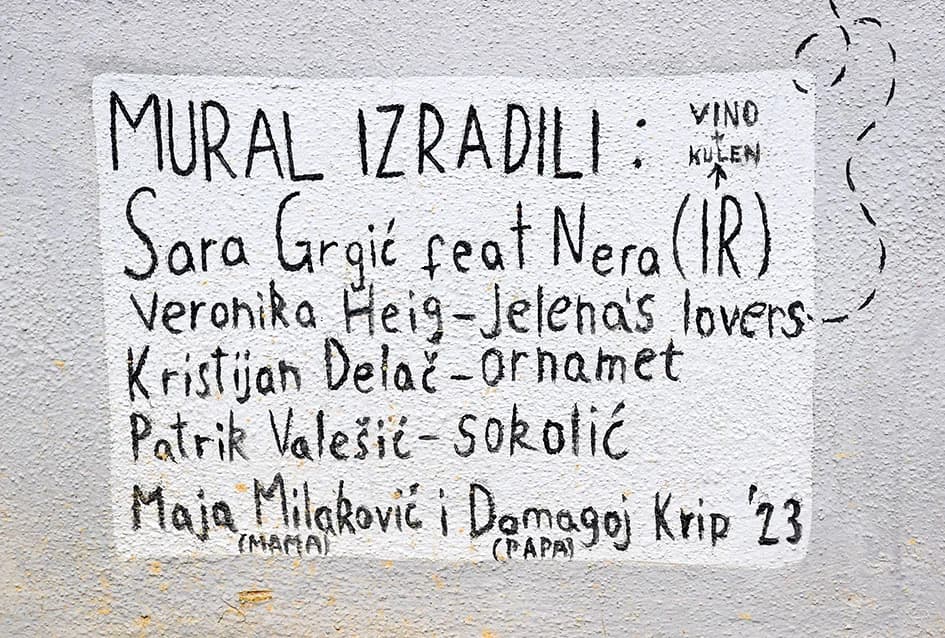 MURAL IZRADILI :
VINO
+
KULEN
Sara Grgić feat Nera (IR)
Veronika Heig - Jelena's lovers
Kristijan Delač - ornamet
Patrik Valešić - sokolić
Maja Milaković i Domagoj Krip '23
(MAMA) (PAPA)